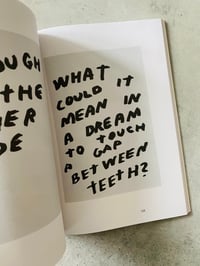 OUGH
THE
HER
DE
WHAT
COULD IT
MEAN IN
A DREAM
TO TOUCH
A GAP
BETWEEN
TEETH?